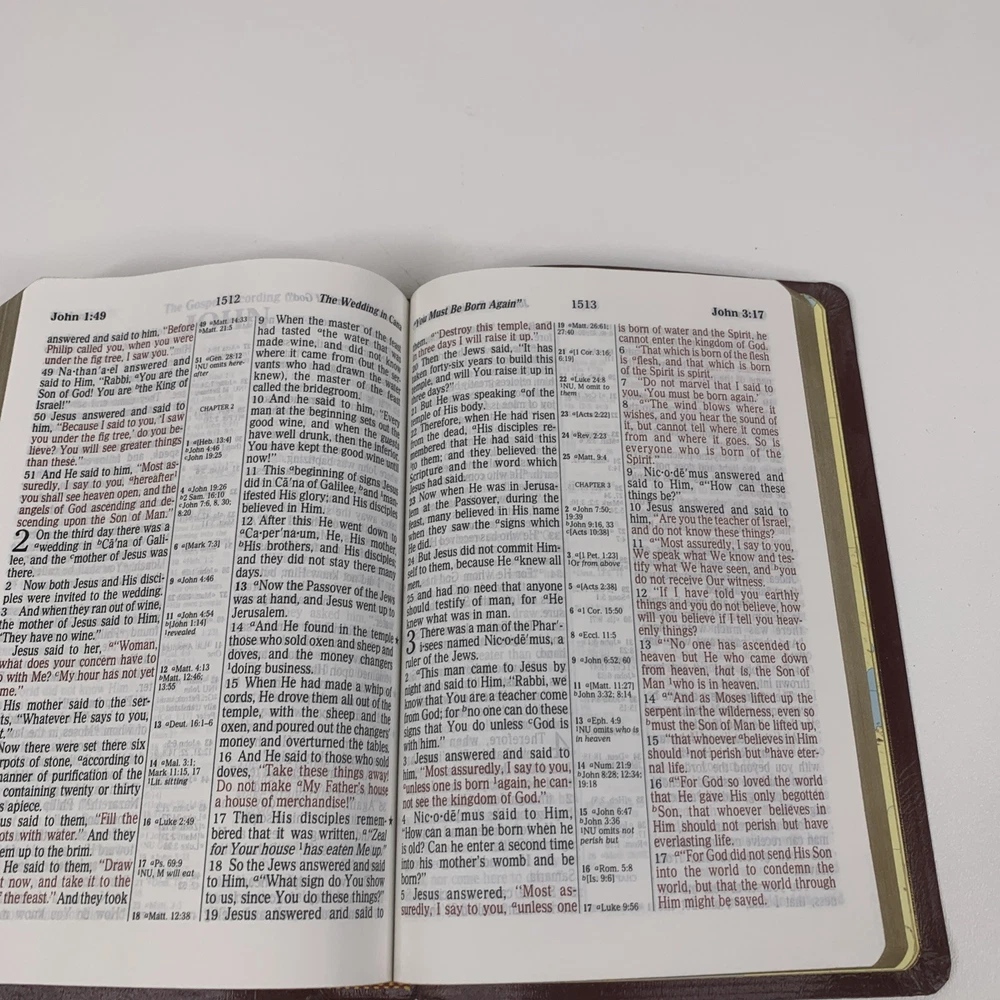 John 1:49
1512
The Wedding in Cana
answered and said to him, "Before
Philip called you, when you were
under the fig tree, I saw you."
49 Na·than′a·el answered and
said to Him, "Rabbi, ᵃYou are the
Son of God! You are ᵇthe King of
Israel!"
50 Jesus answered and said to
him, "Because I said to you, 'I saw
you under the fig tree,' do you be-
lieve? You will see greater things
than these."
51 And He said to him, "Most as-
suredly, I say to you, ᵃhereafter¹
you shall see heaven open, and the
angels of God ascending and de-
scending upon the Son of Man."
2 On the third day there was a
ᵃwedding in ᵇCā′na of Gali-
lee, and the ᶜmother of Jesus was
there.
2 Now both Jesus and His disci-
ples were invited to the wedding.
3 And when they ran out of wine,
the mother of Jesus said to Him,
"They have no wine."
Jesus said to her, ᵃ"Woman,
what does your concern have to
with Me? ᶜMy hour has not yet
me."
His mother said to the ser-
ts, "Whatever He says to you,
t."
Now there were set there six
rpots of stone, ᵃaccording to
anner of purification of the
containing twenty or thirty
s apiece.
us said to them, "Fill the
ots with water." And they
em up to the brim.
He said to them, "Draw
t now, and take it to the
f the feast." And they took
49 ᵃMatt. 14:33
ᵇMatt. 21:5
51 ᵃGen. 28:12
¹NU omits here-
after
CHAPTER 2
1 ᵃ[Heb. 13:4]
ᵇJohn 4:46
ᶜJohn 19:25
4 ᵃJohn 19:26
ᵇ2 Sam. 16:10
ᶜJohn 7:6, 8, 30;
8:20
6 ᵃ[Mark 7:3]
9 ᵃJohn 4:46
11 ᵃJohn 4:54
ᵇ[John 1:14]
¹revealed
12 ᵃMatt. 4:13
ᵇMatt. 12:46;
13:55
13 ᵃDeut. 16:1–6
14 ᵃMal. 3:1;
Mark 11:15, 17
¹Lit. sitting
16 ᵃLuke 2:49
17 ᵃPs. 69:9
¹NU, M will eat
18 ᵃMatt. 12:38
9 When the master of the feast
had tasted ᵃthe water that was
made wine, and did not know
where it came from (but the ser-
vants who had drawn the water
knew), the master of the feast
called the bridegroom.
10 And he said to him, "Every
man at the beginning sets out the
good wine, and when the guests
have well drunk, then the inferior.
You have kept the good wine until
now!"
11 This ᵃbeginning of signs Jesus
did in Cā′na of Galilee, ᵇand ¹man-
ifested His glory; and His disciples
believed in Him.
12 After this He went down to
ᵃCa·per′na·um, He, His mother,
ᵇHis brothers, and His disciples;
and they did not stay there many
days.
13 ᵃNow the Passover of the Jews
was at hand, and Jesus went up to
Jerusalem.
14 ᵃAnd He found in the temple
those who sold oxen and sheep and
doves, and the money changers
¹doing business.
15 When He had made a whip of
cords, He drove them all out of the
temple, with the sheep and the
oxen, and poured out the changers'
money and overturned the tables.
16 And He said to those who sold
doves, "Take these things away!
Do not make ᵃMy Father's house
a house of merchandise!"
17 Then His disciples remem-
bered that it was written, ᵃ"Zeal
for Your house ¹has eaten Me up."
18 So the Jews answered and said
to Him, ᵃ"What sign do You show
to us, since You do these things?"
19 Jesus answered and said to
"You Must Be Born Again"
1513
John 3:17
"Destroy this temple, and
in three days I will raise it up."
20 Then the Jews said, "It has
taken forty-six years to build this
temple, and will You raise it up in
three days?"
21 But He was speaking ᵃof the
temple of His body.
22 Therefore, when He had risen
from the dead, ᵃHis disciples re-
membered that He had said this
to them; and they believed the
Scripture and the word which
Jesus had said.
23 Now when He was in Jerusa-
lem at the Passover, during the
feast, many believed in His name
when they saw the ᵃsigns which
He did.
24 But Jesus did not commit Him-
self to them, because He ᵃknew all
men,
25 and had no need that anyone
should testify of man, for ᵃHe
knew what was in man.
3 There was a man of the Phar′-
isees named Nic·o·dē′mus, a
ruler of the Jews.
2 ᵃThis man came to Jesus by
night and said to Him, "Rabbi, we
know that You are a teacher come
from God; for ᵇno one can do these
signs that You do unless ᶜGod is
with him."
3 Jesus answered and said to
him, "Most assuredly, I say to you,
ᵃunless one is born ¹again, he can-
not see the kingdom of God."
4 Nic·o·dē′mus said to Him,
"How can a man be born when he
is old? Can he enter a second time
into his mother's womb and be
born?"
5 Jesus answered, "Most as-
suredly, I say to you, ᵃunless one
19 ᵃMatt. 26:61;
27:40
21 ᵃ[1 Cor. 3:16;
6:19]
22 ᵃLuke 24:8
¹NU, M omit to
them
23 ᵃ[Acts 2:22]
24 ᵃRev. 2:23
25 ᵃMatt. 9:4
CHAPTER 3
2 ᵃJohn 7:50;
19:39
ᵇJohn 9:16, 33
ᶜ[Acts 10:38]
3 ᵃ[1 Pet. 1:23]
¹Or from above
5 ᵃ[Acts 2:38]
6 ᵃ1 Cor. 15:50
8 ᵃEccl. 11:5
9 ᵃJohn 6:52, 60
11 ᵃ[Matt. 11:27]
ᵇJohn 3:32; 8:14
13 ᵃEph. 4:9
¹NU omits who is
in heaven
14 ᵃNum. 21:9
ᵇJohn 8:28; 12:34;
19:18
15 ᵃJohn 6:47
ᵇJohn 3:36
¹NU omits not
perish but
16 ᵃRom. 5:8
ᵇ[Is. 9:6]
17 ᵃLuke 9:56
is born of water and the Spirit, he
cannot enter the kingdom of God.
6 "That which is born of the flesh
is ᵃflesh, and that which is born
of the Spirit is spirit.
7 "Do not marvel that I said to
you, 'You must be born again.'
8 ᵃ"The wind blows where it
wishes, and you hear the sound of
it, but cannot tell where it comes
from and where it goes. So is
everyone who is born of the
Spirit."
9 Nic·o·dē′mus answered and
said to Him, ᵃ"How can these
things be?"
10 Jesus answered and said to
him, "Are you the teacher of Israel,
and do not know these things?
11 ᵃ"Most assuredly, I say to you,
We speak what We know and tes-
tify what We have seen, and ᵇyou
do not receive Our witness.
12 "If I have told you earthly
things and you do not believe, how
will you believe if I tell you heav-
enly things?
13 ᵃ"No one has ascended to
heaven but He who came down
from heaven, that is, the Son of
Man ¹who is in heaven.
14 ᵃ"And as Moses lifted up the
serpent in the wilderness, even so
ᵇmust the Son of Man be lifted up,
15 "that whoever ᵃbelieves in Him
should ¹not perish but ᵇhave eter-
nal life.
16 ᵃ"For God so loved the world
that He gave His only begotten
ᵇSon, that whoever believes in
Him should not perish but have
everlasting life.
17 ᵃ"For God did not send His Son
into the world to condemn the
world, but that the world through
Him might be saved.